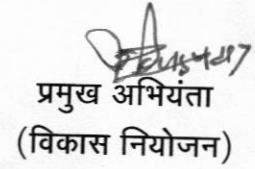 प्रमुख अभियंता
(विकास नियोजन)